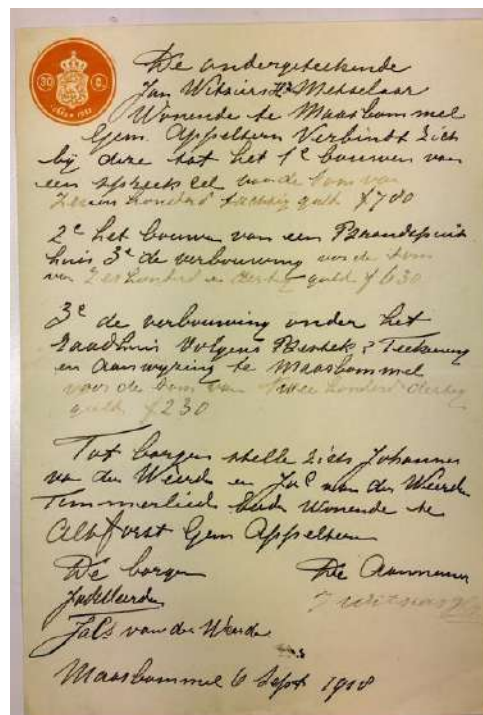 30 C.
De ondergeteekende
Jan Witsiers Hz Metselaar
Wonende te Maasbommel
Gem. Appeltern Verbindt zich
bij deze tot het 1e bouwen van
een voor de som van
Zeven honderd tachtig guld f 780
2e het bouwen van een Brandspuit
huis 3e de verbouwing voor de som
van Zeshonderd en dertig guld f 630
3e de verbouwing onder het
Raadhuis Volgens Bestek & Teekening
en Aanwyzing te Maasbommel
voor de som van twee honderd dertig
guld. f 230
Tot borgen stelle zich Johannes
van der Weerde en Jac van der Weerde
Timmerlied beide Wonende te
Altforst Gem Appeltern
De borgen De Aannemer
JvdWeerden J Witsiers Hz
Jacs van der Weerde
Maasbommel 6 Sept 1918